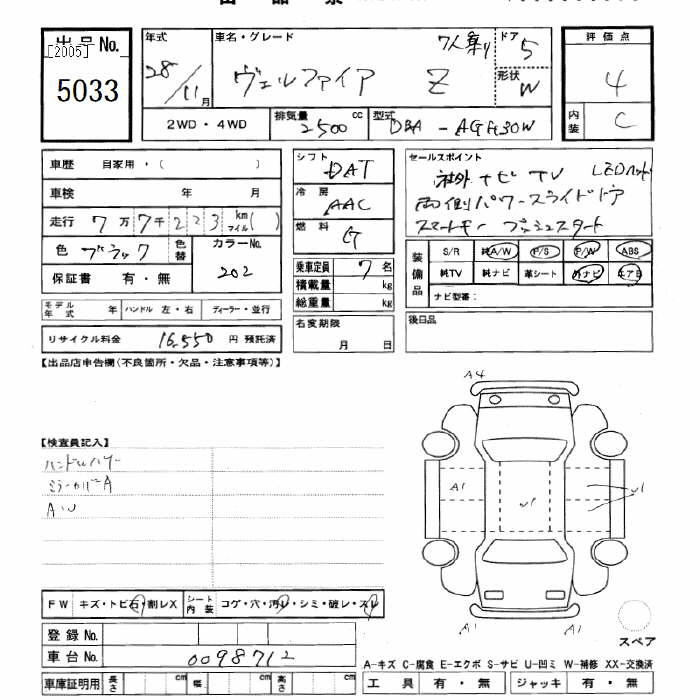 出品No. [2005] 5033
年式 28/11月
車名・グレード ヴェルファイア Z 7人乗り
ドア 5
形状 W
評価点 4
内装 C
2WD・4WD
排気量 2500 cc
型式 DBA-AGH30W
車歴 自家用・( )
車検 年 月
走行 7万7千223 km マイル( )
色 ブラック 色替
カラーNo. 202
保証書 有・無
モデル年式 年 ハンドル 左・右 ディーラー・並行
リサイクル料金 16,550 円 預託済
シフト DAT
冷房 AAC
燃料 G
乗車定員 7 名
積載量 kg
総重量 kg
名変期限 月 日
セールスポイント
社外ナビ TV LEDヘッド
両側パワースライドドア
スマートキー プッシュスタート
装備品 S/R 純A/W P/S P/W ABS
純TV 純ナビ 革シート 外ナビ エアB
ナビ型番:
後日品
【出品店申告欄(不良箇所・欠品・注意事項等)】
【検査員記入】
ミラーカバーA
FW キズ・トビ石・割レX シート内装 コゲ・穴・汚レ・シミ・破レ・スレ
登録No.
車台No. 0098712
車庫証明用 長さ cm 幅 cm 高さ cm
A4
A1
W1
W1
A1
A1
スペア
A―キズ C―腐食 E―エクボ S―サビ U―凹ミ W―補修 XX―交換済
工具 有・無 ジャッキ 有・無